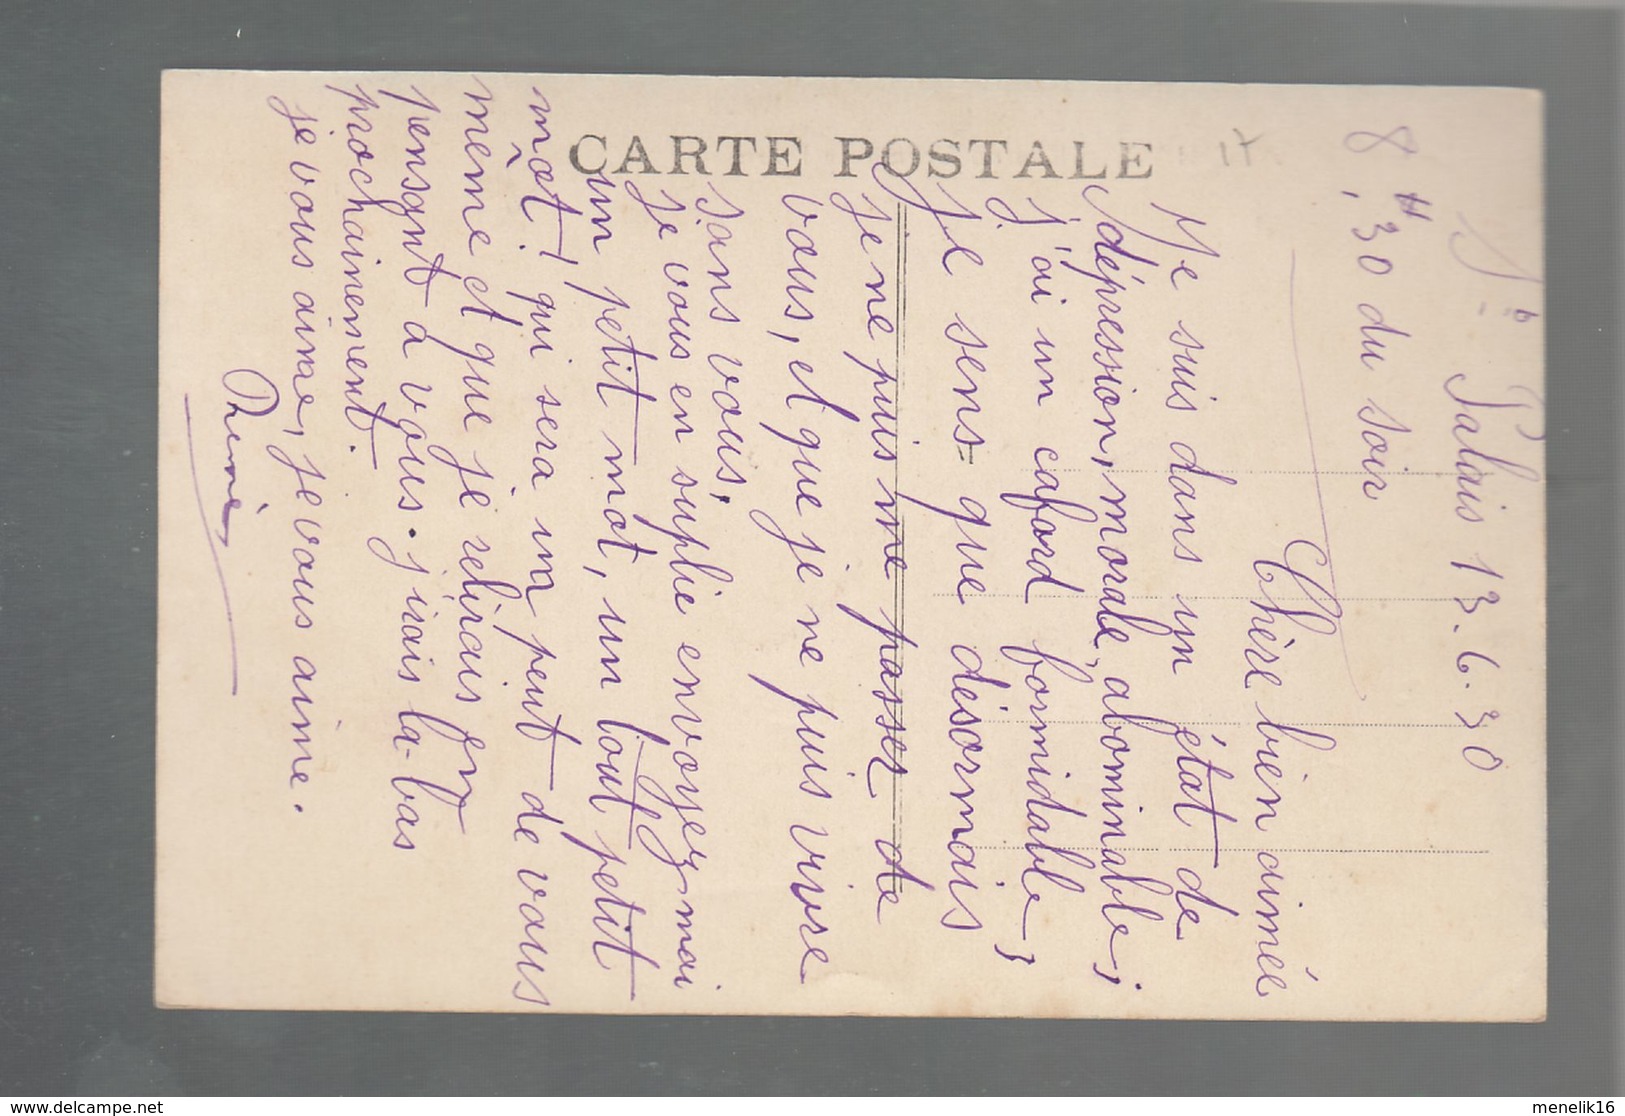 CARTE POSTALE
St Palais 13.6.30
8H,30 du soir
Chère bien aimée
Je suis dans un état de
dépression, morale, abominable;
j'ai un cafard formidable,
je sens que désormais
je ne puis me passer de
vous, et que je ne puis vivre
sans vous,
je vous en suplie envoyez moi
un petit mot, un tout petit
môt! qui sera un peut de vous
même et que je relirais en
pensant à vous. j'irais la-bas
prochainement.
je vous aime, je vous aime.
www.delcampe.net
menelik16